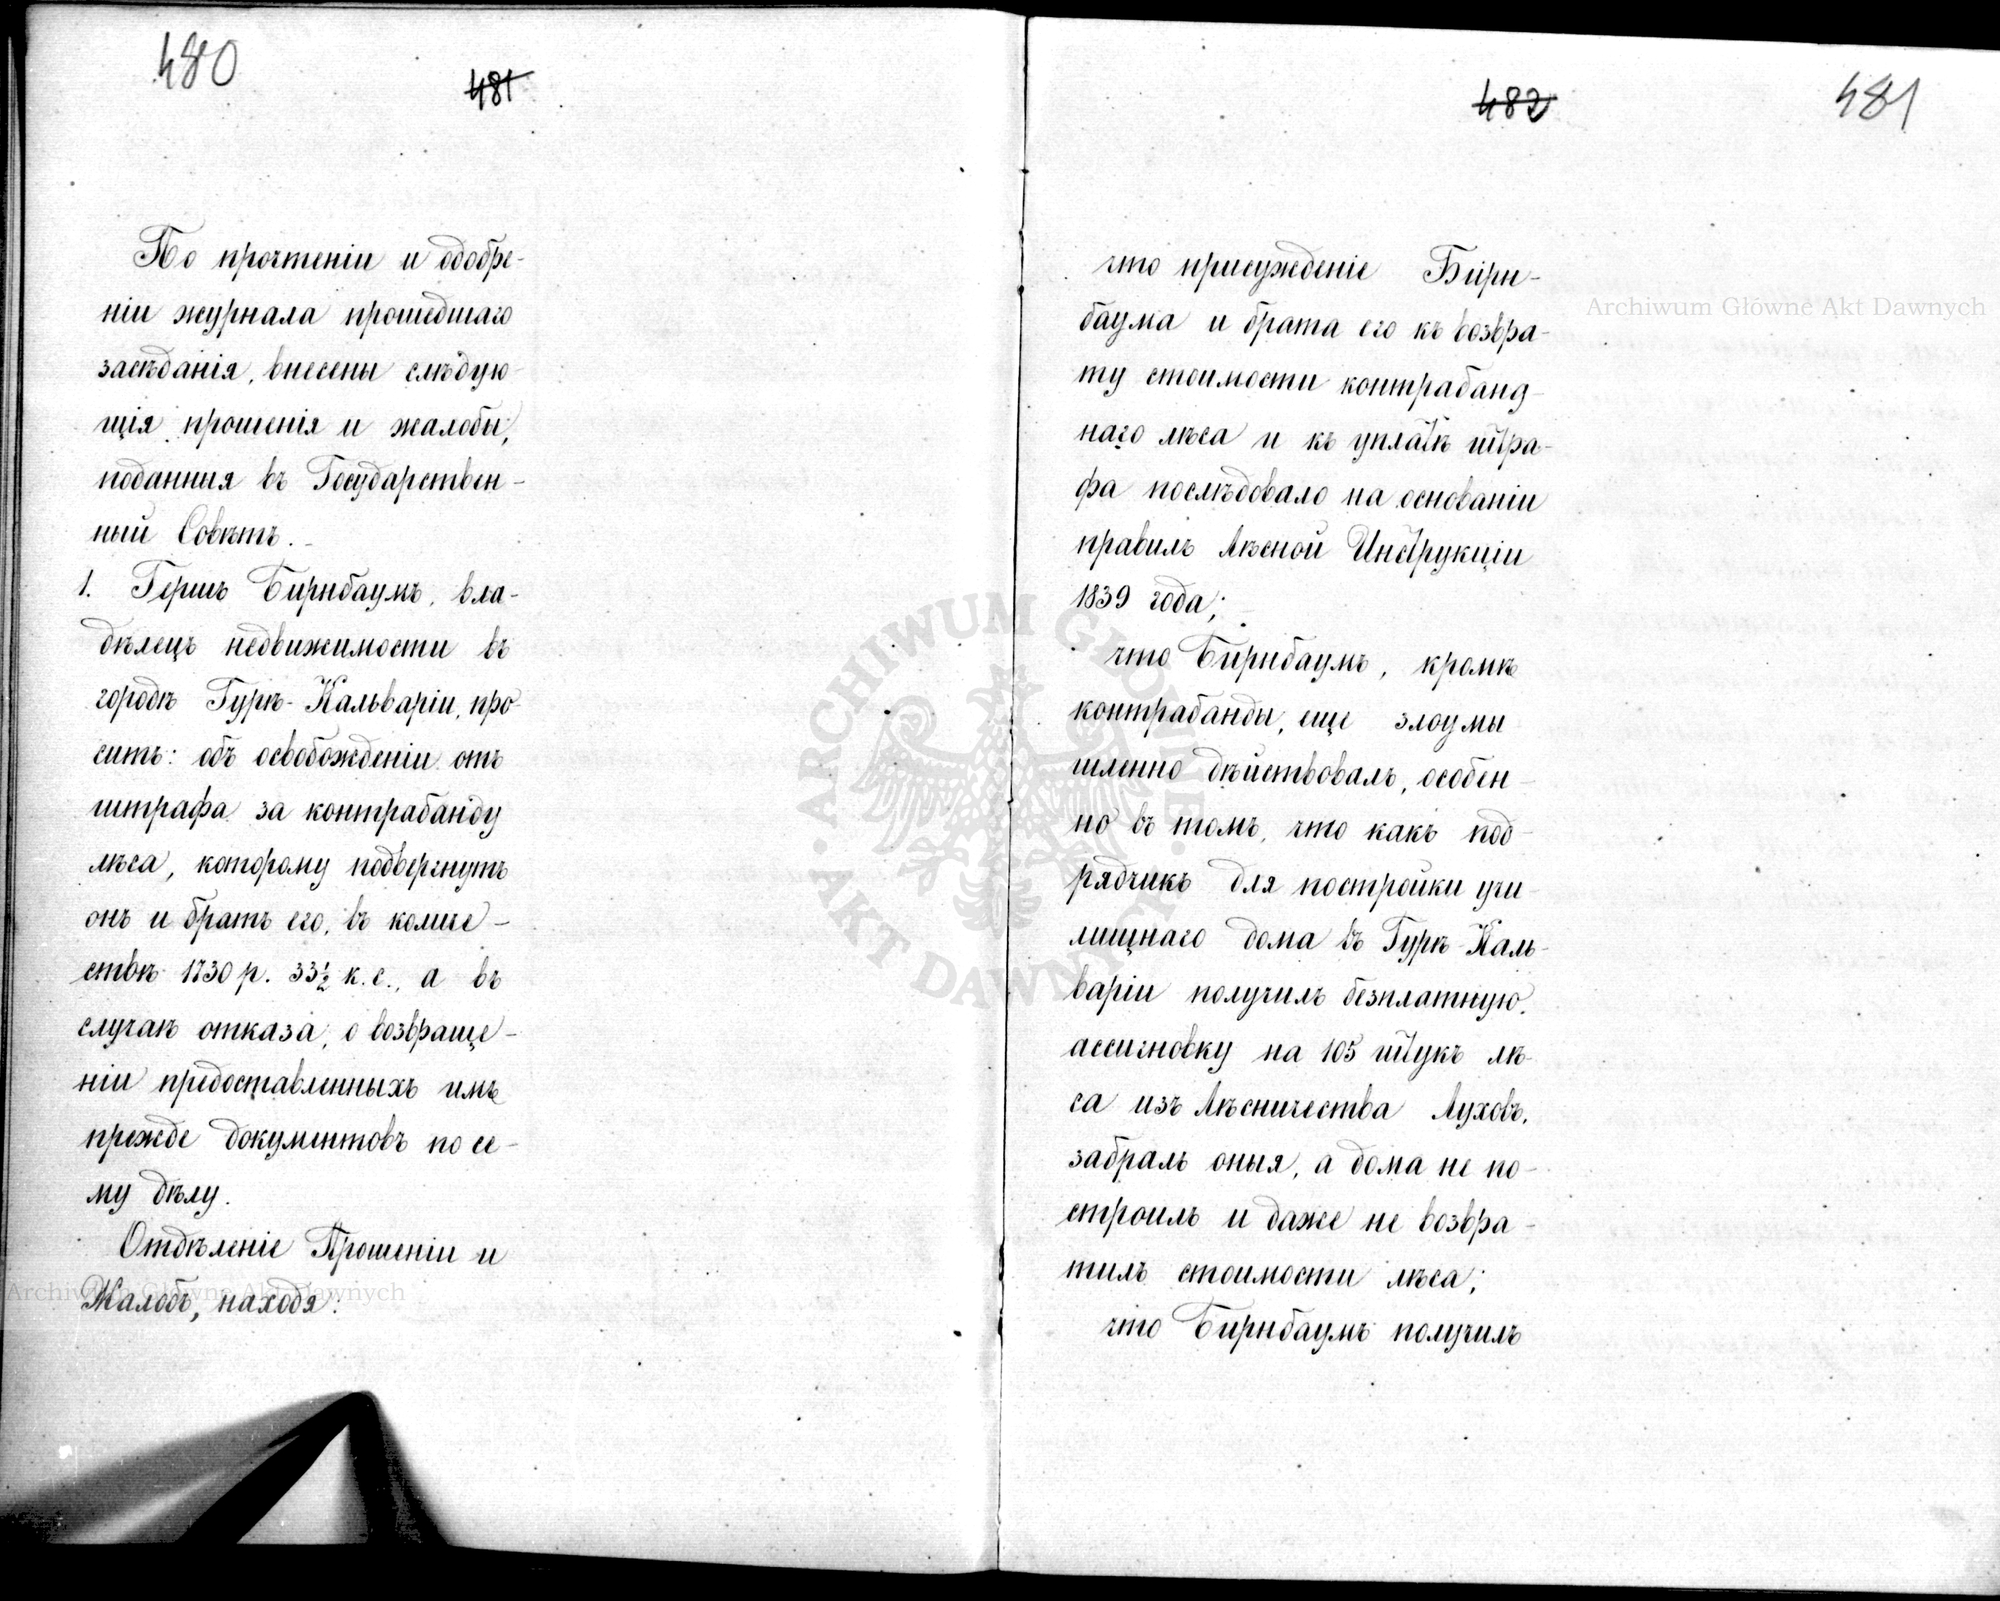 480
481
По прочтеніи и одобре-
ніи журнала прошедшаго
засѣданія, внесены слѣдую-
щія прошенія и жалобы,
поданныя въ Государствен-
ный Совѣтъ.
1. Гершъ Бирнбаумъ, вла-
дѣлецъ недвижимости въ
городѣ Гурѣ-Кальваріи, про-
ситъ: объ освобожденіи отъ
штрафа за контрабанду
лѣса, которому подвергнутъ
онъ и братъ его, въ количе-
ствѣ 1730 р. 33½ к. с., а въ
случаѣ отказа, о возвраще-
ніи предоставленныхъ имъ
прежде документовъ по се-
му дѣлу.
Отдѣленіе Прошеній и
Жалобъ, находя:
Archiwum Główne Akt Dawnych
482
481
что присужденіе Бирн-
баума и брата его къ возвра-
ту стоимости контрабанд-
наго лѣса и къ уплатѣ штра-
фа послѣдовало на основаніи
правилъ Лѣсной Инструкціи
1839 года;
что Бирнбаумъ, кромѣ
контрабанды, еще злоумы
шленно дѣйствовалъ, особен-
но въ томъ, что какъ под-
рядчикъ для постройки учи
лищнаго дома въ Гурѣ-Каль-
варіи получилъ безплатную
ассигновку на 105 штукъ лѣ-
са изъ Лѣсничества Луховъ,
забралъ оныя, а дома не по-
строилъ и даже не возвра-
тилъ стоимости лѣса;
что Бирнбаумъ получилъ
Archiwum Główne Akt Dawnych
ARCHIWUM GŁÓWNE AKT DAWNYCH